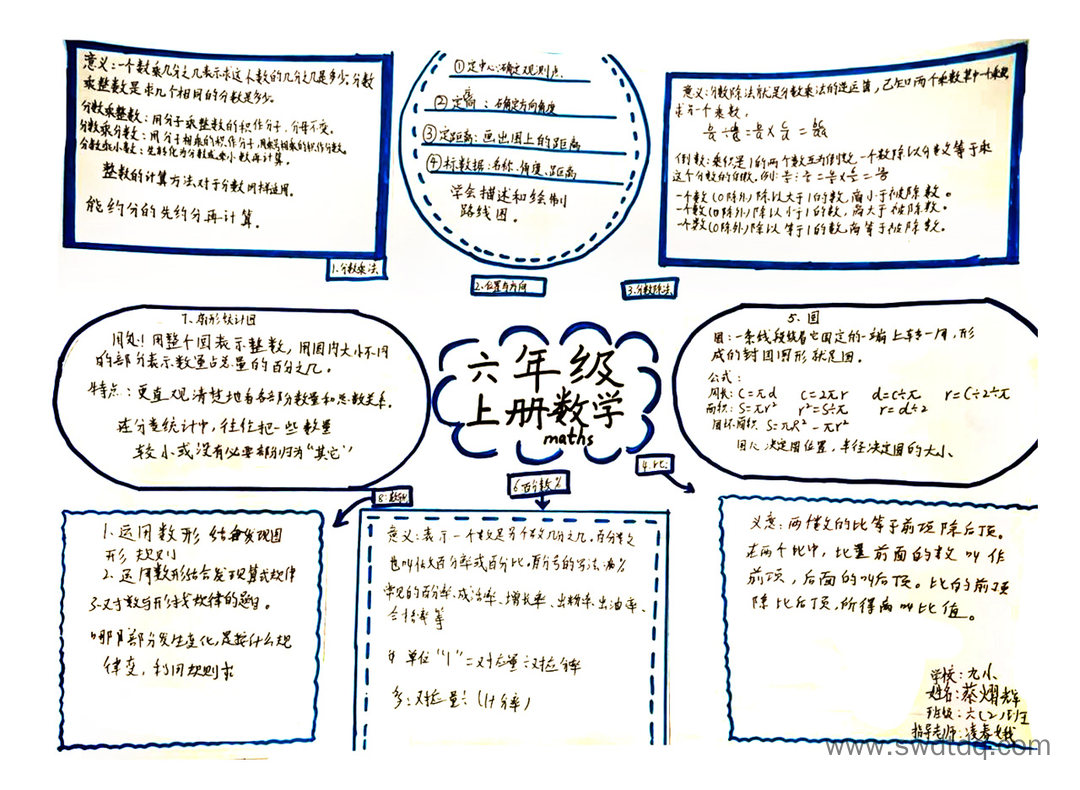 意义：一个数乘几分之几表示求这个数的几分之几是多少，分数
乘整数是求几个相同的分数是多少。
分数乘整数：用分子乘整数的积作分子，分母不变。
分数乘分数：用分子相乘的积作分子，用分母相乘的积作分母。
分数乘小数：
整数的计算方法对于分数同样适用。
能约分的先约分再计算。
1.分数乘法
①定中心：确定观测点
②定向：确定方向角度
③定距离：画出图上的距离
④标数据：名称、角度、距离
学会描述和绘制
路线图。
2.位置与方向
意义：分数除法就是分数乘法的逆运算，已知两个乘数其中一个乘积
求另一个乘数，
倒数：乘积是1的两个数互为倒数，一个数除以分数等于乘
这个分数的倒数。例：
一个数（0除外）除以大于1的数，商小于被除数。
一个数（0除外）除以小于1的数，商大于被除数。
一个数（0除外）除以等于1的数，商等于被除数。
3.分数除法
7、扇形统计图
用处：用整个圆表示整数，用圆内大小不同
的部分表示数量占总量的百分之几。
特点：更直观清楚地看各部分数量和总数关系。
在分类统计中，往往把一些数量
较小或没有必要部分归为“其它”
六年级
上册数学
maths
5、圆
圆：一条线段绕着它固定的一端上转一周，形
成的封闭图形就是圆。
公式：
周长：C=πd C=2πr d=C÷π r=C÷2÷π
面积：S=πr² r²=S÷π r=d÷2
圆环面积 S=πR²-πr²
圆心决定圆位置，半径决定圆的大小
8.数形
6百分数%
4.比
1、运用数形结合发现图
形规则
2、运用数形结合发现算式规律
3、对于数与形找规律的题目。
哪部分发生变化，是按什么规
律变，利用规则求
意义：表示一个数是另个数几分之几。百分数
也叫做百分率或百分比。百分号的写法为%
常见的百分率、成活率、增长率、出粉率、出油率、
合格率等
单位“1”=对应量÷对应分率
多：对应量÷（1+分率）
义意：两个数的比等于前项除后项。
在两个比中，比号前面的数叫作
前项，后面的叫后项。比的前项
除比后项，所得商叫比值。
学校：九小
姓名：蔡熠辉
班级：六（2）班
指导老师：凌春
www.swdtdq.com